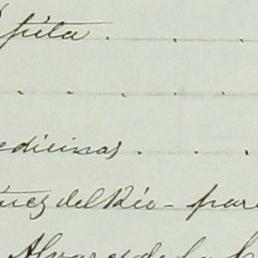 pita . . .
. . . .
edicinas . . .
uez del Rio - par
Alvarez de la C